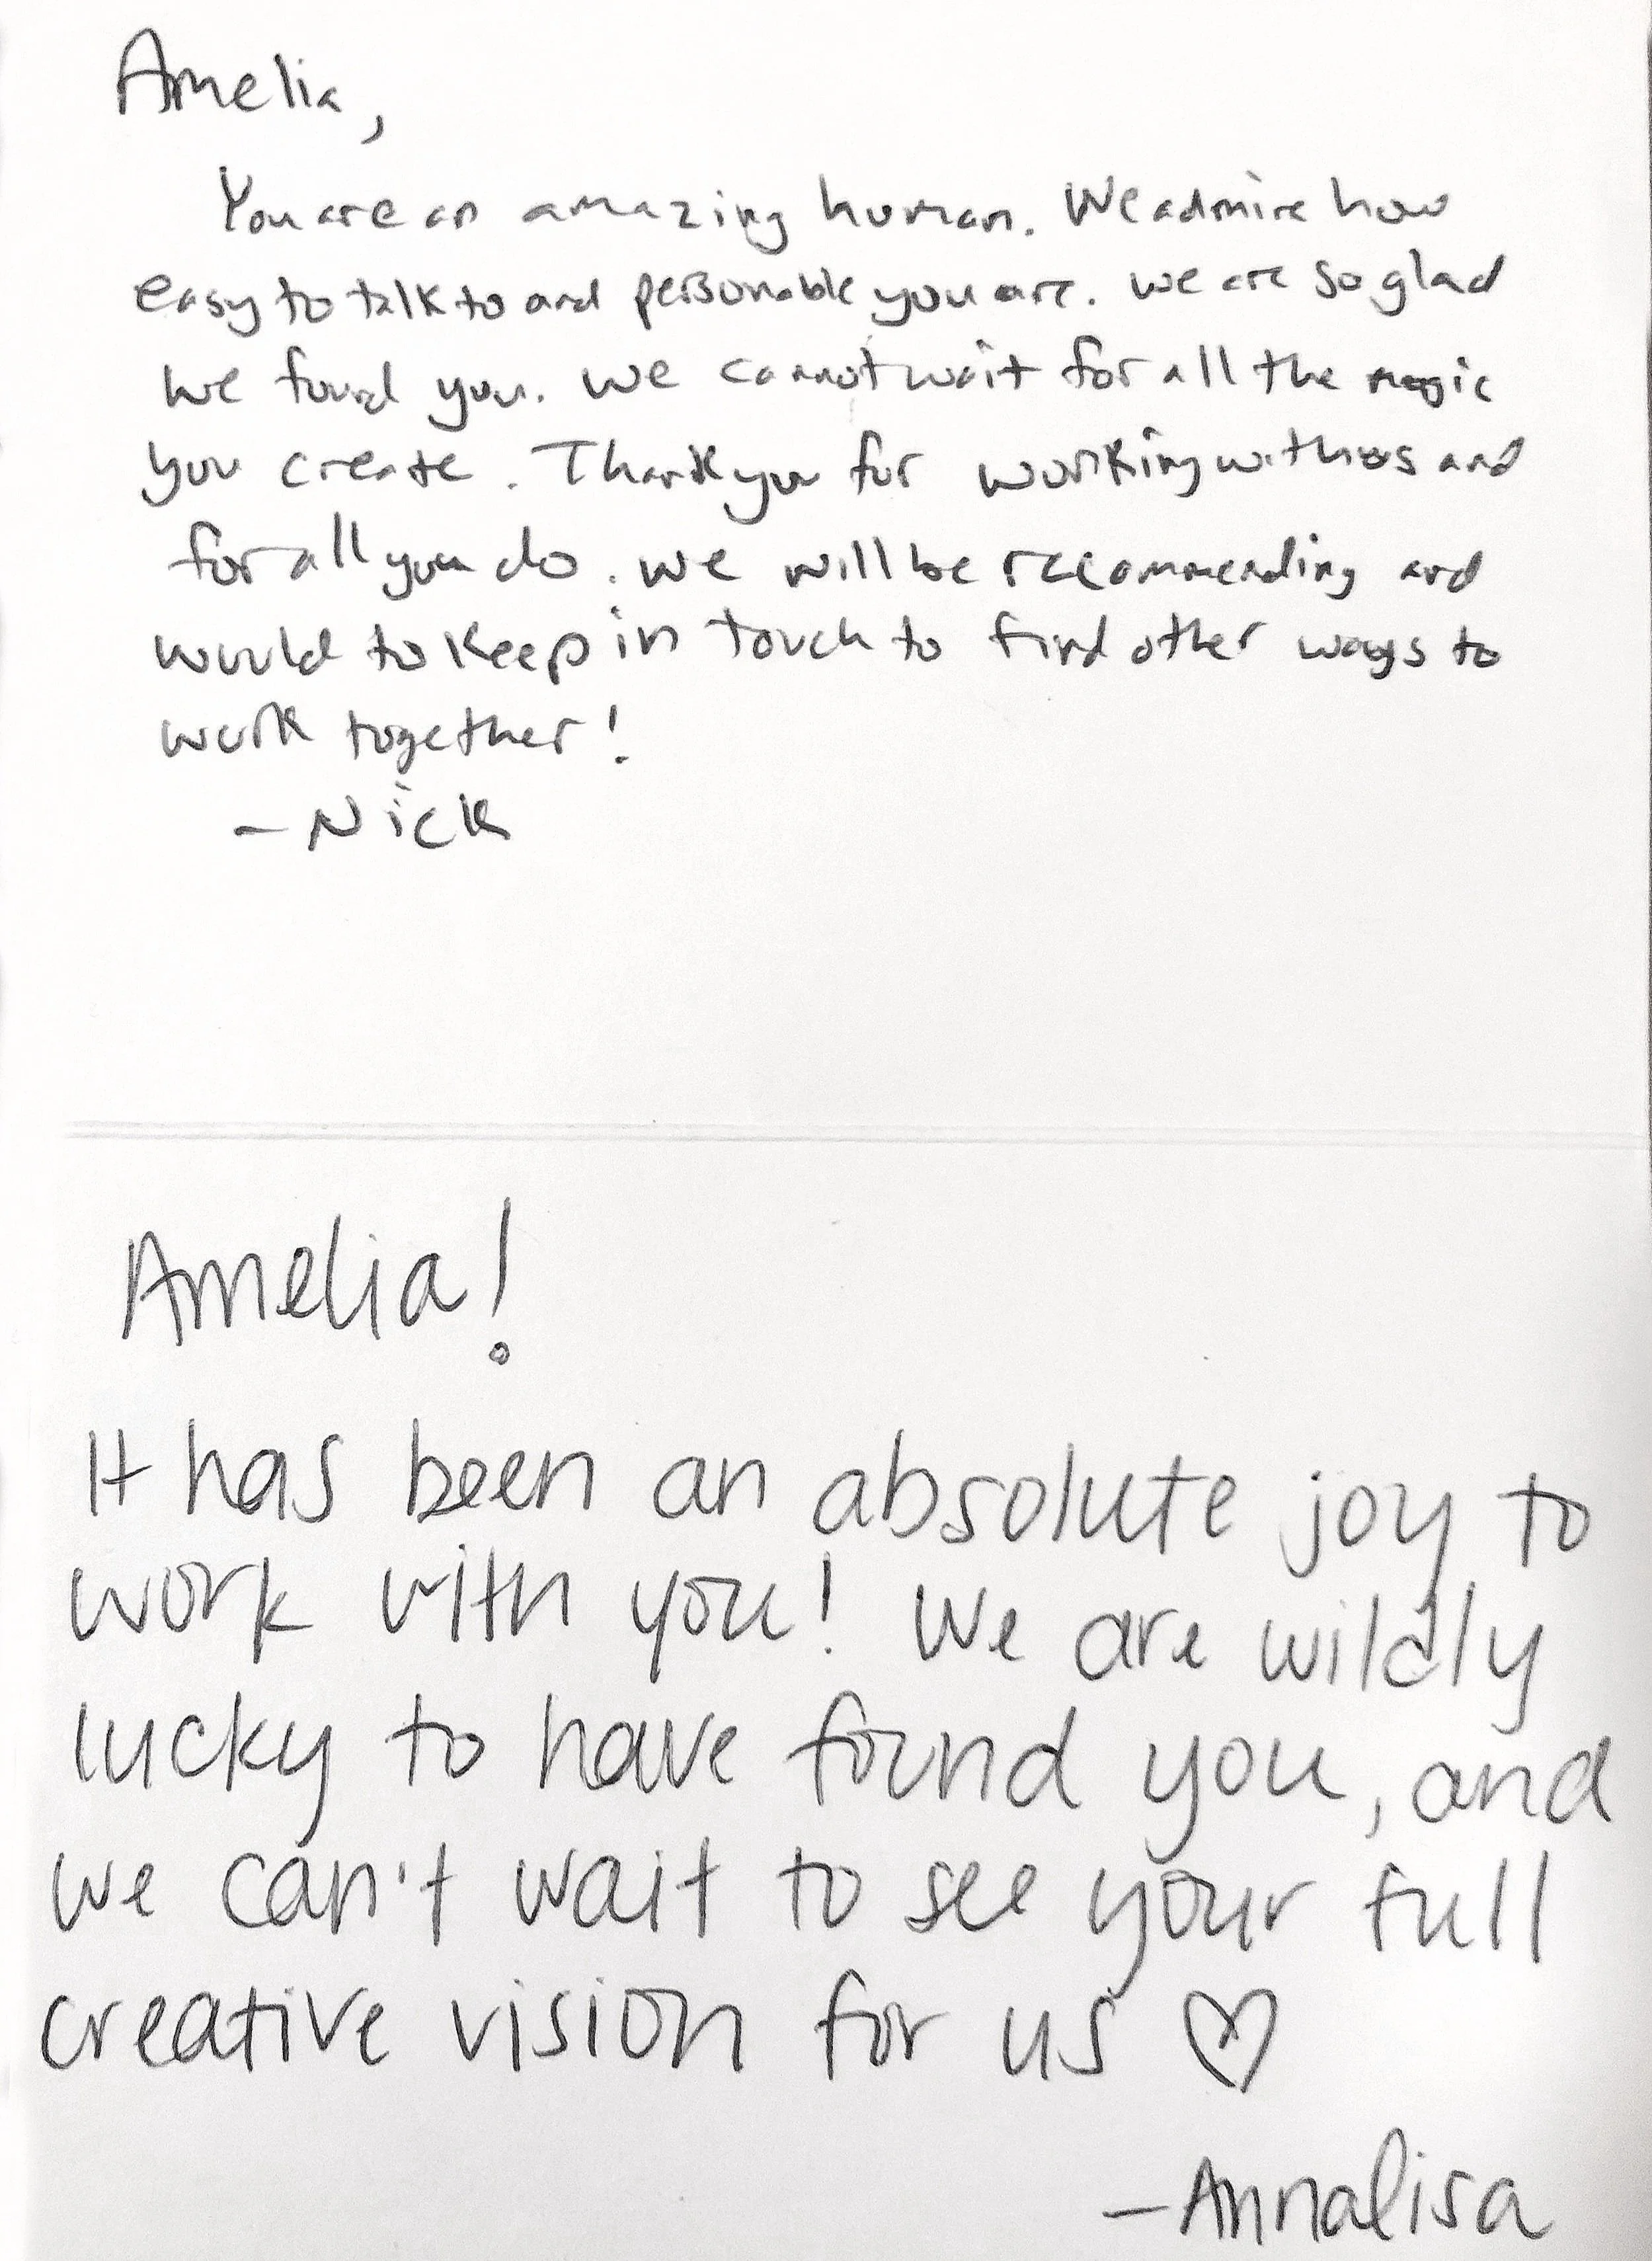 Amelia,
You are an amazing human. We admire how
easy to talk to and personable you are. We are so glad
we found you. We cannot wait for all the magic
you create. Thank you for working with us and
for all you do. We will be recommending and
would to keep in touch to find other ways to
work together!
- Nick
Amelia!
It has been an absolute joy to
work with you! We are wildly
lucky to have found you, and
we can't wait to see your full
creative vision for us ♡
- Annalisa